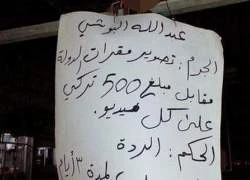 عبد الله البوشي
الجرم: تصوير مقرات الدولة
مقابل مبلغ 500 تركي
على كل فيديو.
الحكم: الردة
لمدة ٣ أيام